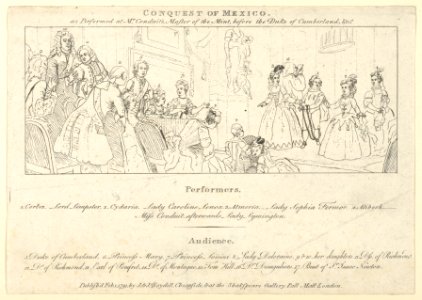 CONQUEST OF MEXICO.
as Performed at Mr. Conduit's, Master of the Mint, before the Duke of Cumberland, &c.
Performers.
1 Cortez. Lord Lempster. 2 Cydaria. Lady Caroline Lenox. 3 Almeria. Lady Sophia Fermor. 4 Alibech.
Miss Conduit, afterwards Lady Lymington.
Audience.
5 Duke of Cumberland. 6 Princess Mary. 7 Princess Louisa. 8 Lady Deloraine. 9 & 10 her daughters. 11 Dss. of Richmond.
12 D. of Richmond. 13 Earl of Pomfret. 14 D. of Montague. 15 Tom Hill. 16 Dr. Desaguliers. 17 Bust of Sr. Isaac Newton.
Publish'd Feb. 1, 1791, by J. & J. Boydell, Cheapside, & at the Shakspeare Gallery Pall Mall London.